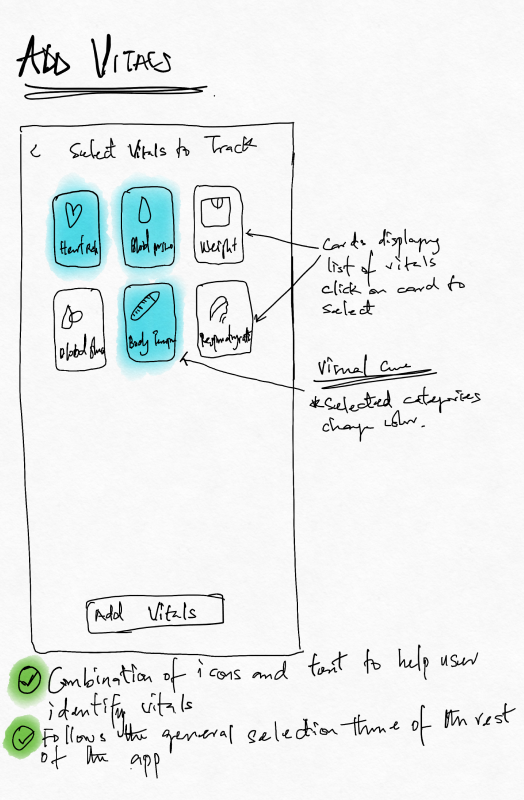 ADD VITALS
< Select Vitals to Track
Heart Rate
Blood
Weight
Blood
Body Temp
Respiratory rate
Cards displaying
list of vitals
click on card to
select
Visual Cue
*Selected categories
change color.
Add Vitals
Combination of icons and text to help user
identify vitals
Follows the general selection theme of the rest
of the app